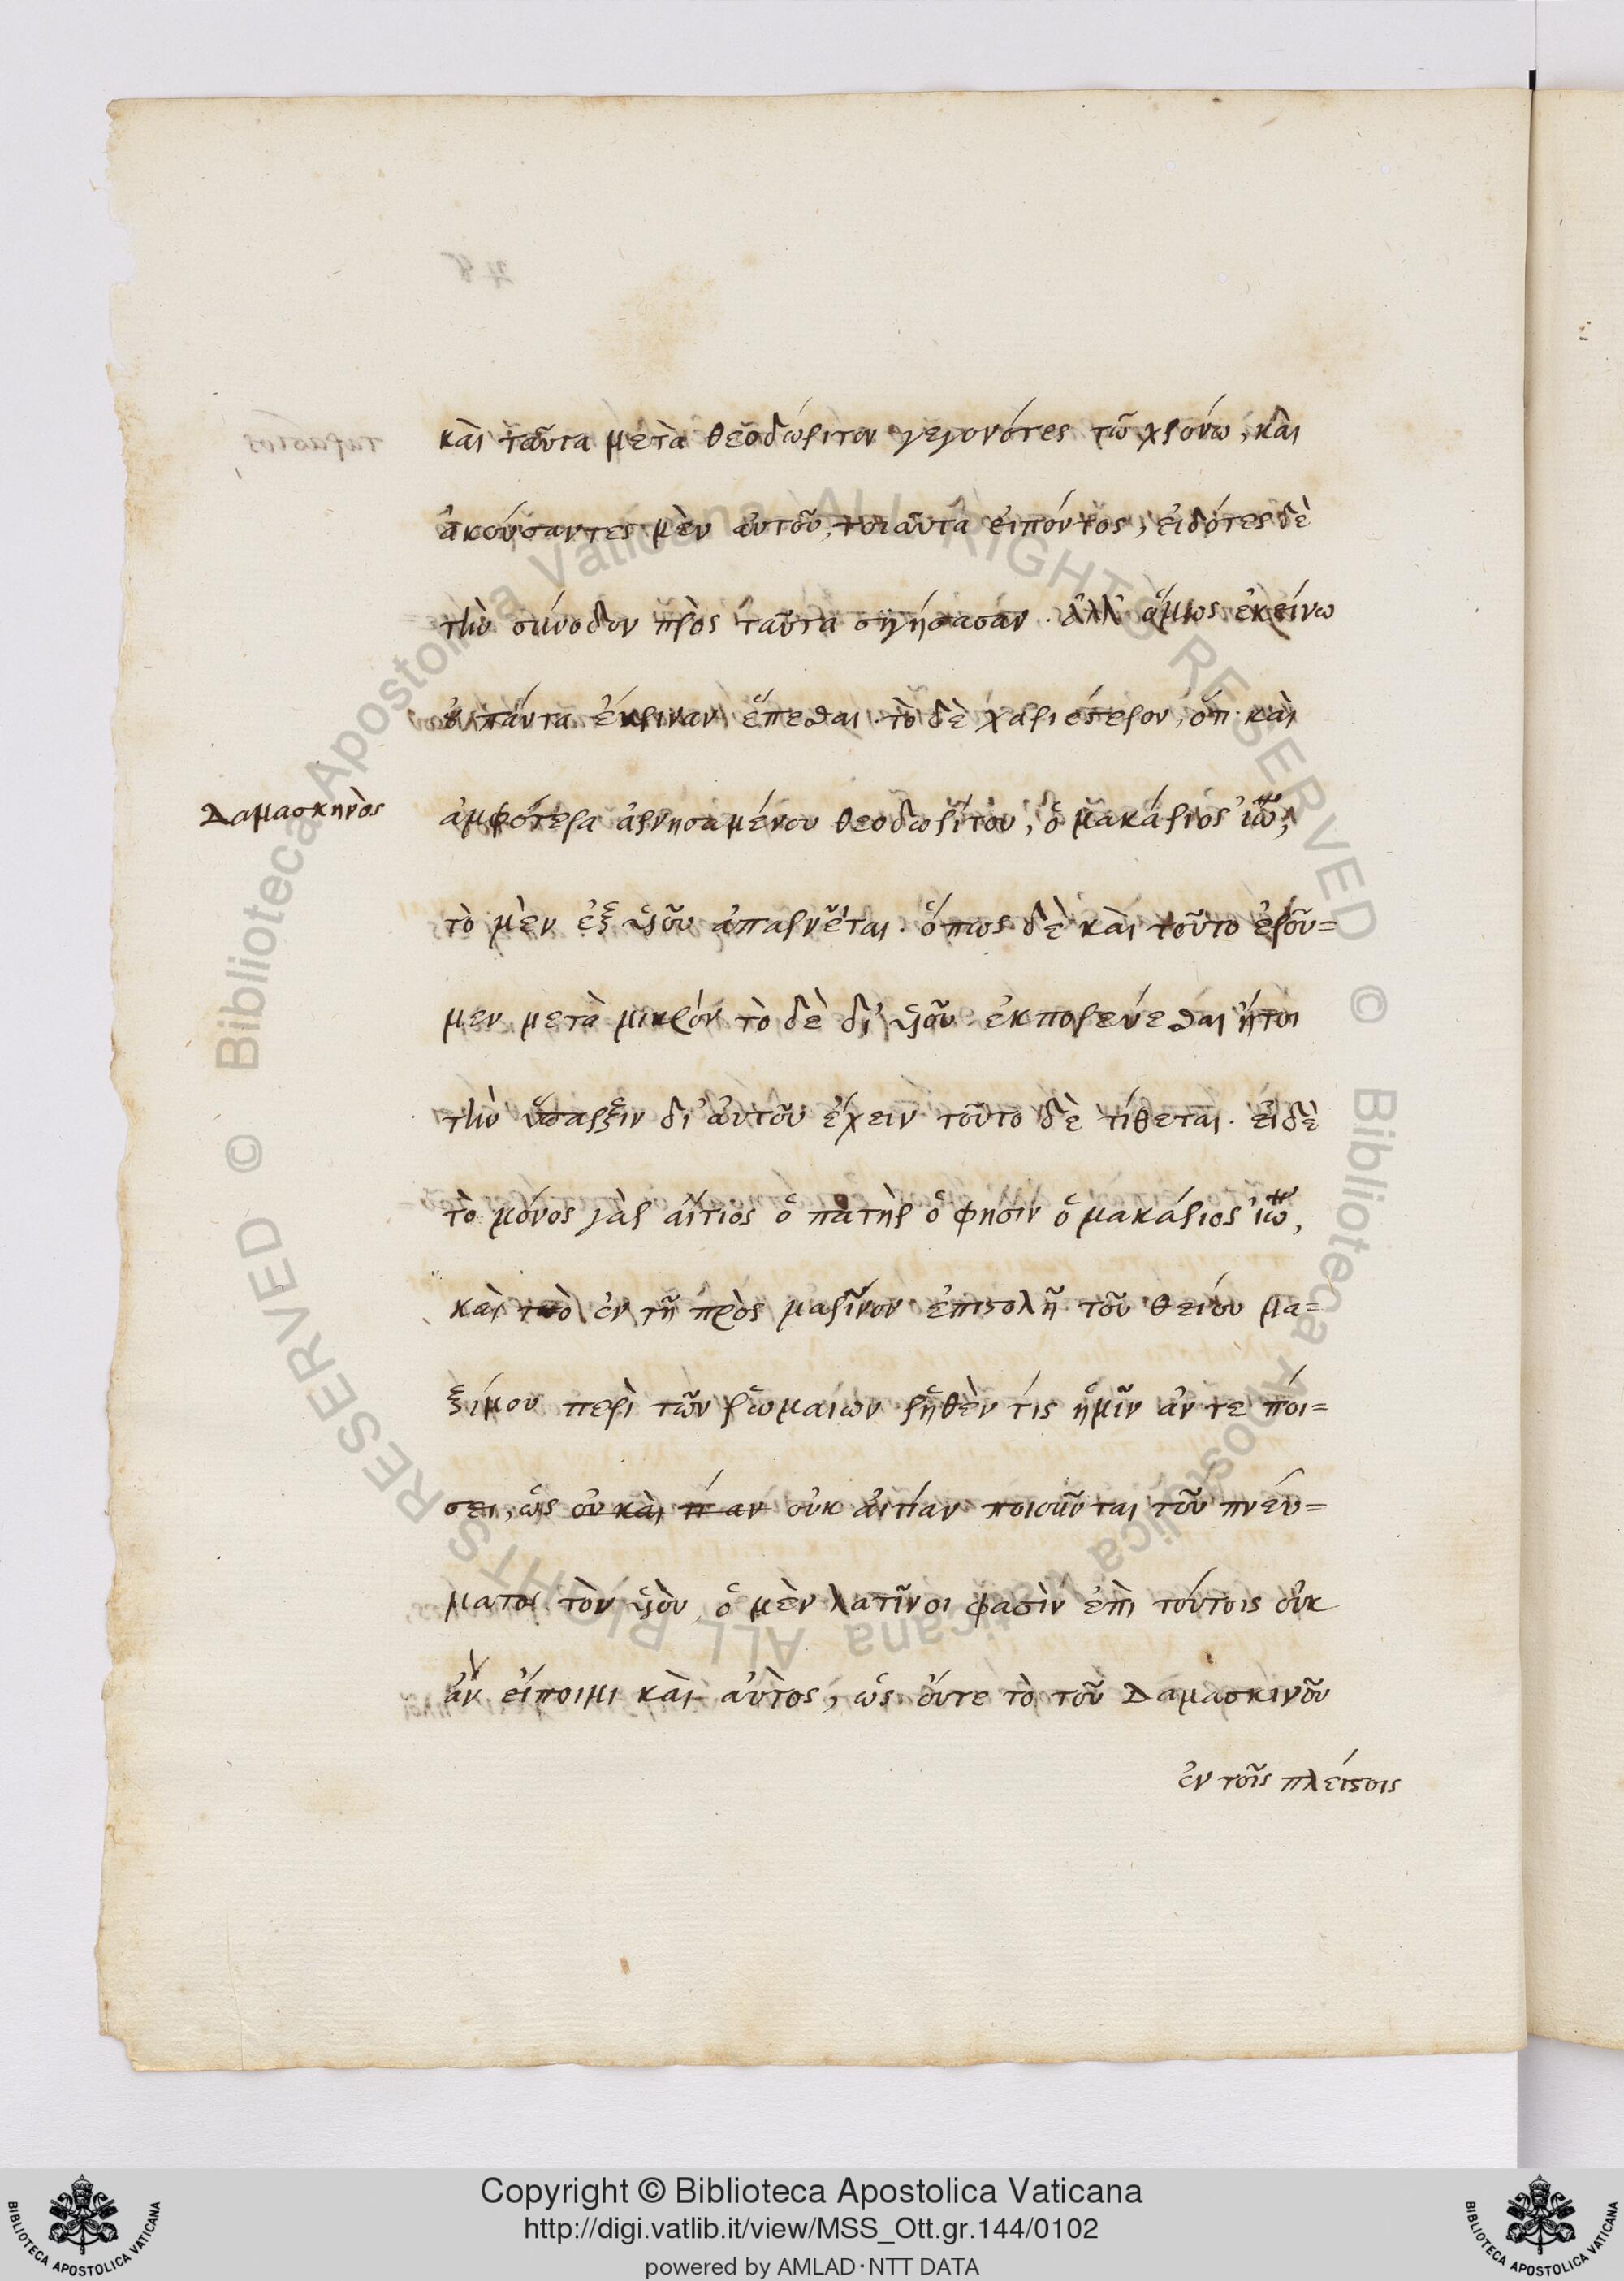 καὶ ταῦτα μετὰ θεοδώριτον γεγονότες τῶ χρόνω, καὶ
ἀκούσαντες μὲν αὐτοῦ, τοιαῦτα εἰπόντος, εἰδότες δὲ
τὴν σύνοδον πρὸς ταῦτα σιγήσασαν. ἀλλ' ὅμως ἐκείνω
οὐ πάντα ἔκριναν ἕπεσθαι. τὸ δὲ χαριέστερον, ὅτι καὶ
Δαμασκηνὸς
ἀμφότερα ἀρνησαμένου θεοδωρίτου, ὁ μακάριος ἰω̅,
τὸ μὲν ἐξ υἱοῦ ἀπαρνεῖται. ὅπως δὲ καὶ τοῦτο ἐροῦ=
μεν μετὰ μικρόν τὸ δὲ δι' υἱοῦ ἐκπορεύεσθαι ἤτοι
τὴν ὕπαρξιν δι' αὐτοῦ ἔχειν τοῦτο δὲ τίθεται. εἰ δὲ
τὸ μόνος γὰρ αἴτιος ὁ πατὴρ ὅ φησιν ὁ μακάριος ἰω̅,
καὶ τὸ ἐν τῆ πρὸς μαρῖνον ἐπιστολῆ τοῦ θείου μα=
ξίμου περὶ τῶν ῥωμαίων ῥηθὲν τίς ἡμῖν ἀν τε ποί=
σει, ὡς οὐ καὶ τί αν οὐκ αἰτίαν ποιοῦνται τοῦ πνεύ=
ματος τὸν υἱὸν, ὃ μὲν λατῖνοι φασὶν ἐπὶ τούτοις οὐκ
ἀν εἴποιμι καὶ αὐτος, ὡς οὔτε τὸ τοῦ Δαμασκινοῦ
ἐν τοῖς πλείστοις
Copyright © Biblioteca Apostolica Vaticana
http://digi.vatlib.it/view/MSS_Ott.gr.144/0102
powered by AMLAD·NTT DATA
BIBLIOTECA APOSTOLICA VATICANA
BIBLIOTECA APOSTOLICA VATICANA
© Biblioteca Apostolica Vaticana ALL RIGHTS RESERVED © Biblioteca Apostolica Vaticana ALL RIGHTS RESERVED